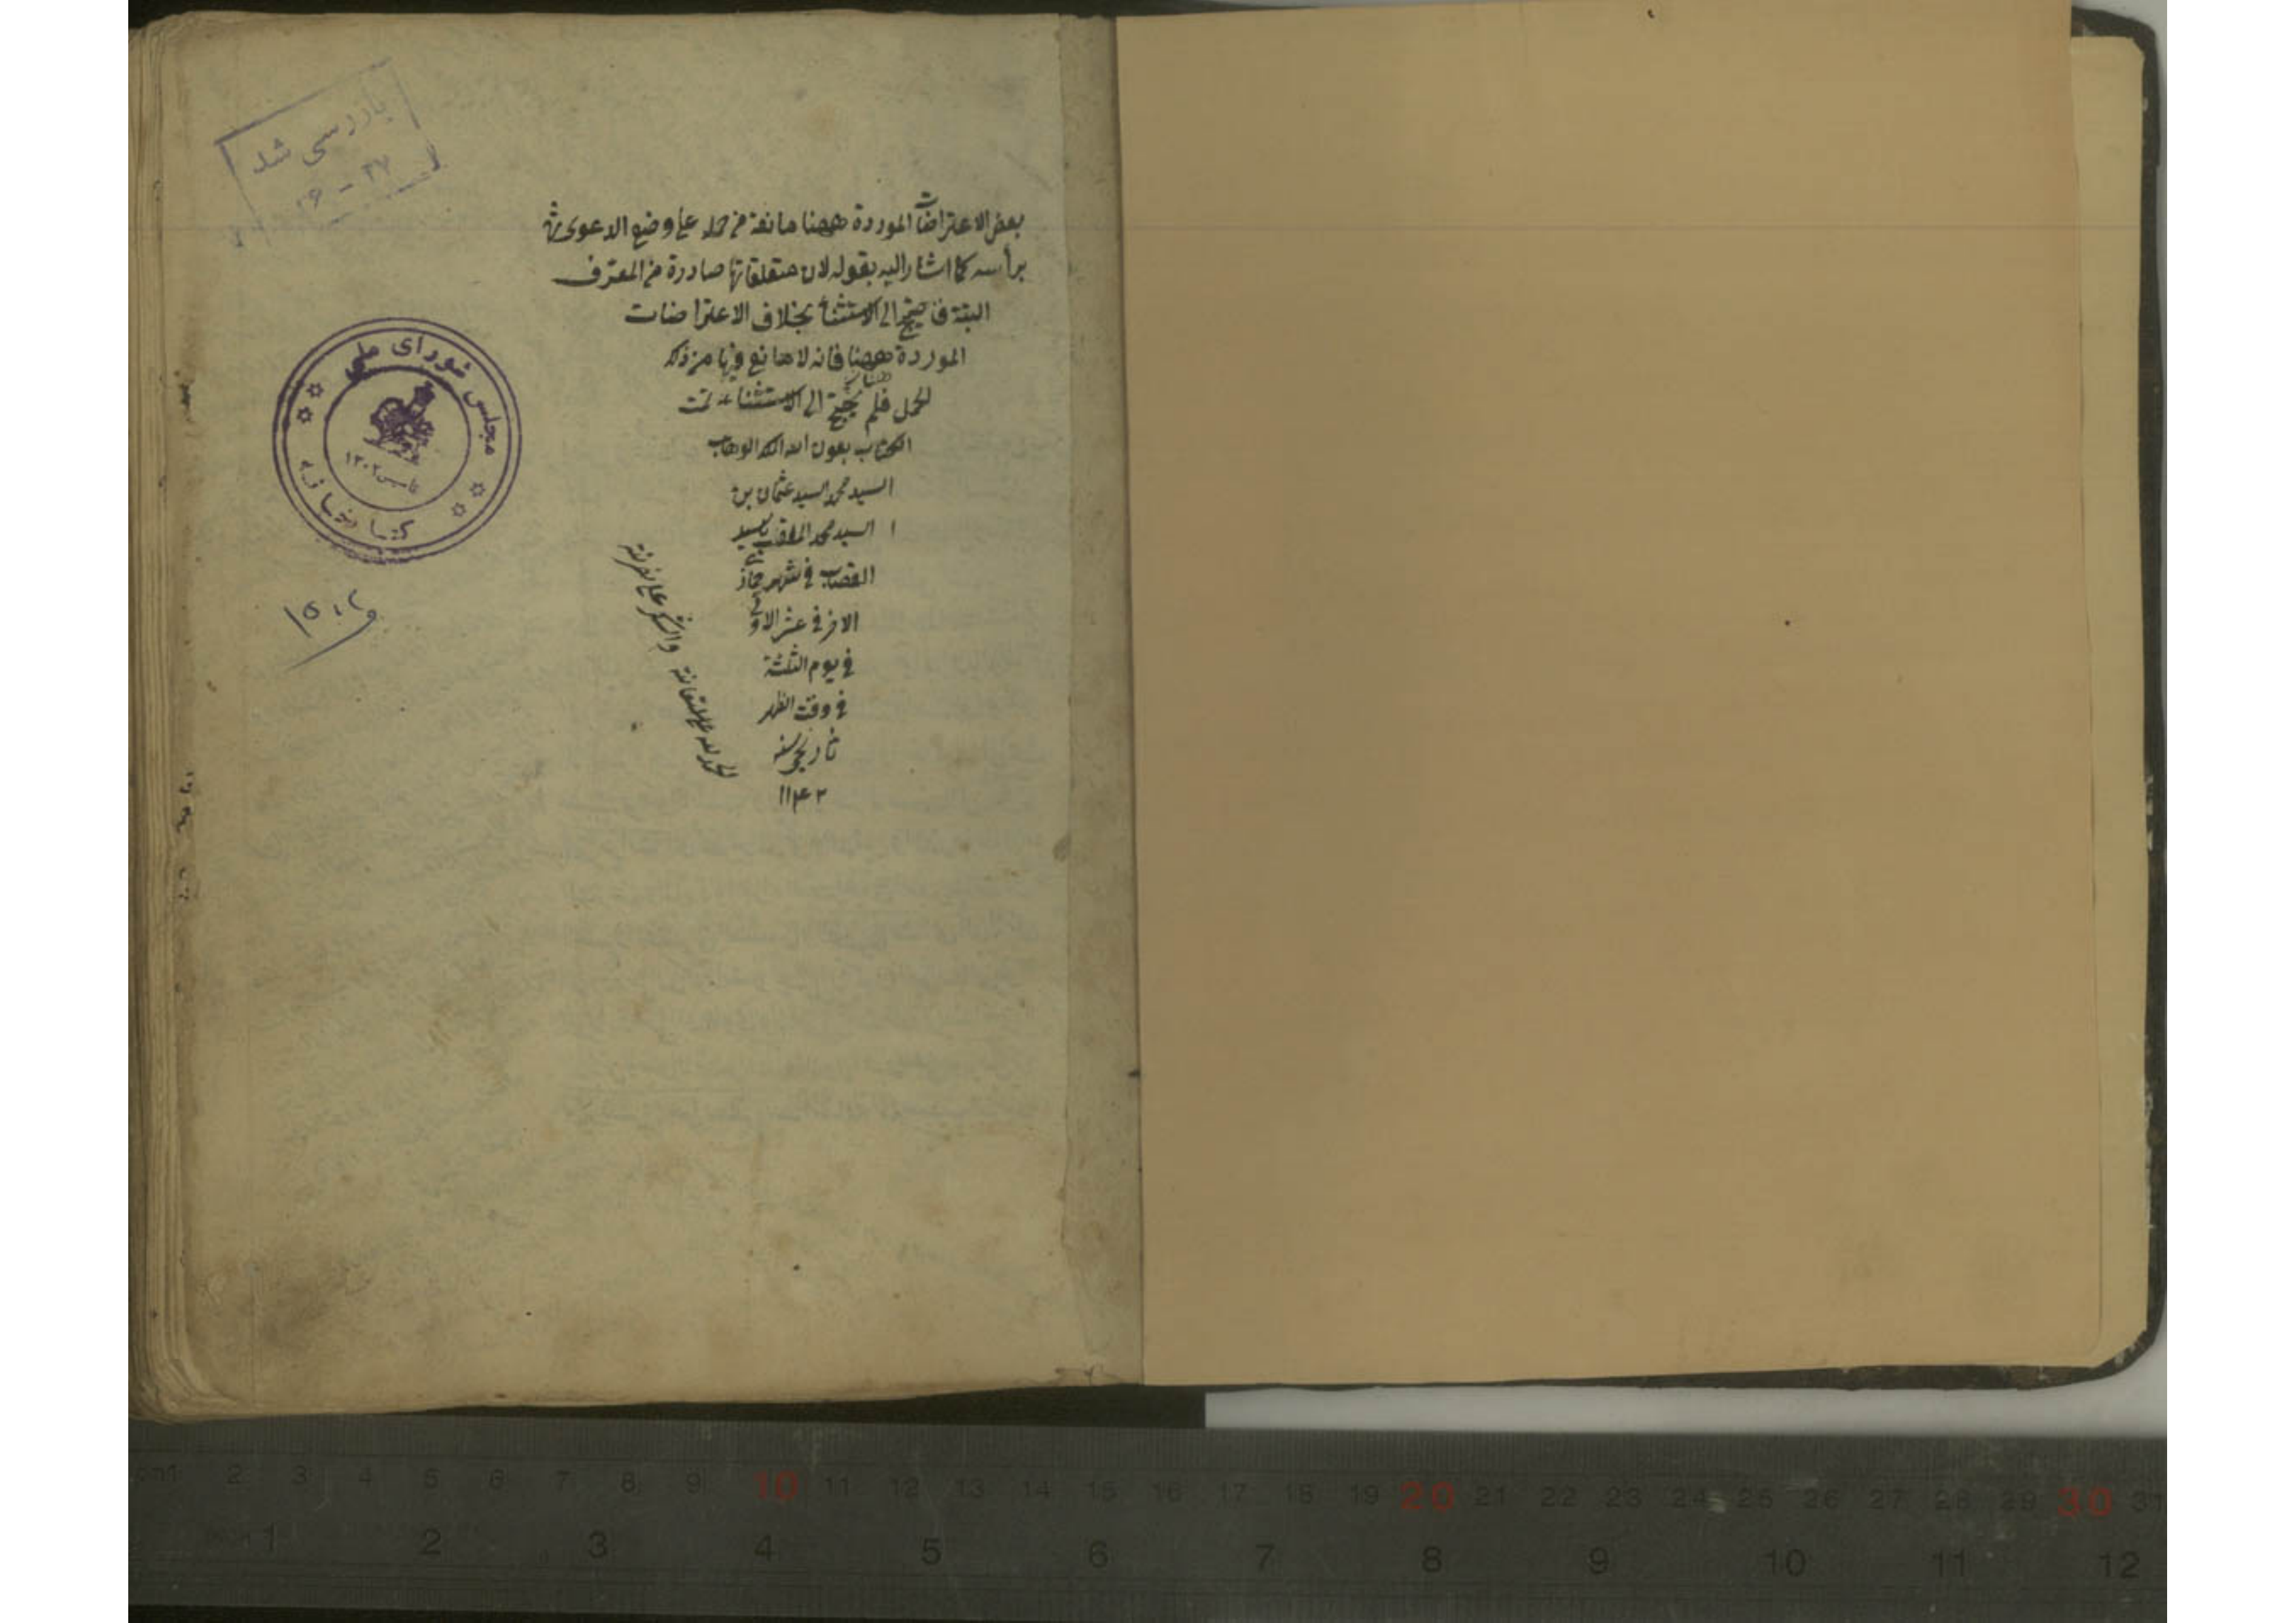 بازرسی شد
۳۷ - ۲۶
بعض الاعتراضات الموردة ههنا مانعة من حمله على وضع الدعوى
برأسه كما اشار اليه بقوله لان متعلقاتها صادرة من المعترف
البتة الى الاستثناء بخلاف الاعتراضات
الموردة ههنا فانه لا مانع فيها من ذلك
الحمل فلم يحتج هناك الى الاستثناء تمت
الكتاب بعون الله الملك الوهاب
السيد محمد السيد عثمان بن
السيد محمد الملقب بسيد
القصاب في شهر جماذى
الاخر في عشر الاول
في يوم الثلثة
في وقت الظهر
تاريخ سنه
۱۱۴۲
الحمد لله على
والشكر على
مجلس شورای ملی
تاسیس ۱۳۰۲
کتابخانه